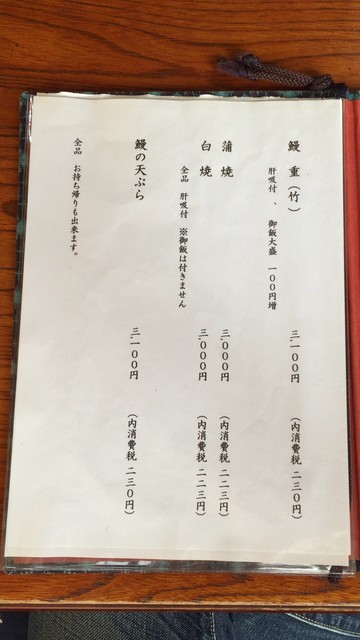 鰻重（竹）　三、一００円　（内消費税 二三０円）
肝吸付 、 御飯大盛 一００円増
蒲焼　三、０００円　（内消費税 二二三円）
白焼　三、０００円　（内消費税 二二三円）
全品 肝吸付 ※御飯は付きません
鰻の天ぷら　三、一００円　（内消費税 二三０円）
全品 お持ち帰りも出来ます。